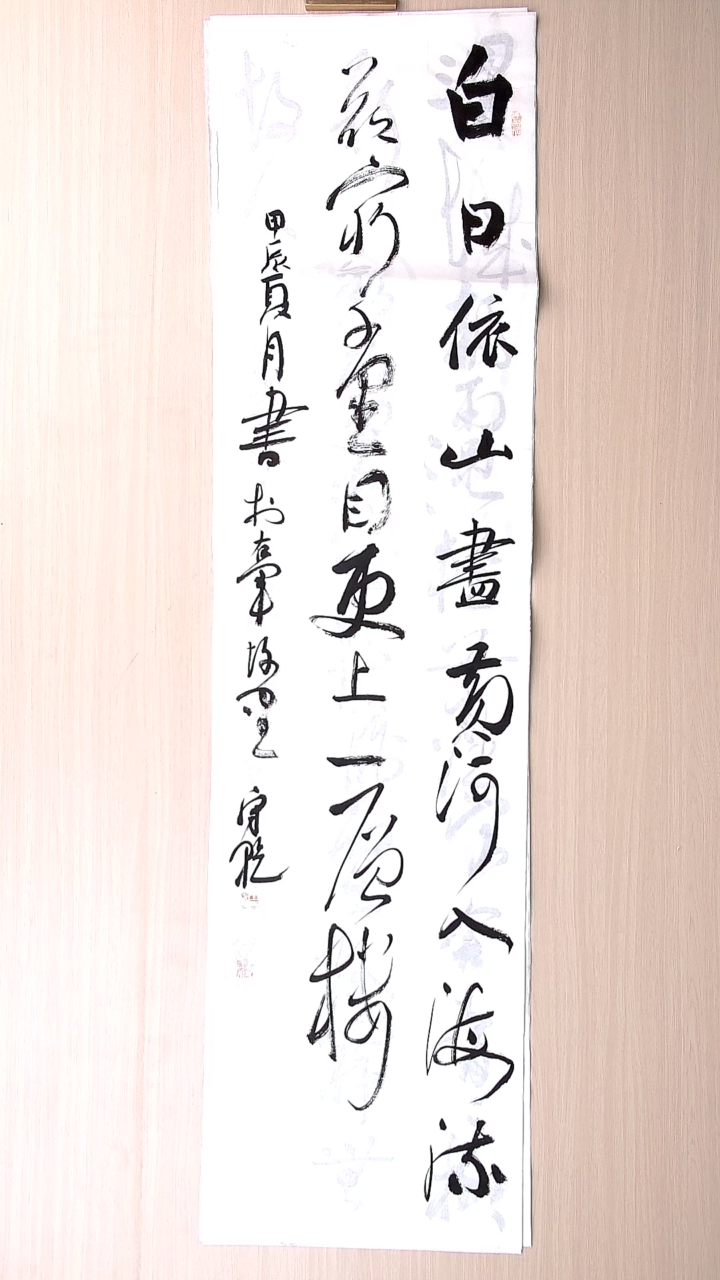 白日依山盡黃河入海流
欲窮千里目更上一層樓
甲辰夏月書於古肇故里